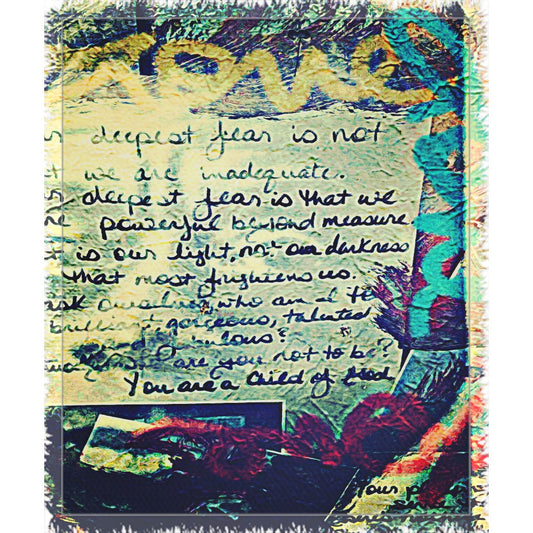 deepest fear is not
we are inadequate.
deepest fear is that we
powerful beyond measure
is our light, not our darkness
that most frightens us.
ask ourselves, who am I to
brilliant, gorgeous, talented
fabulous?
are you not to be?
You are a child of God
Your